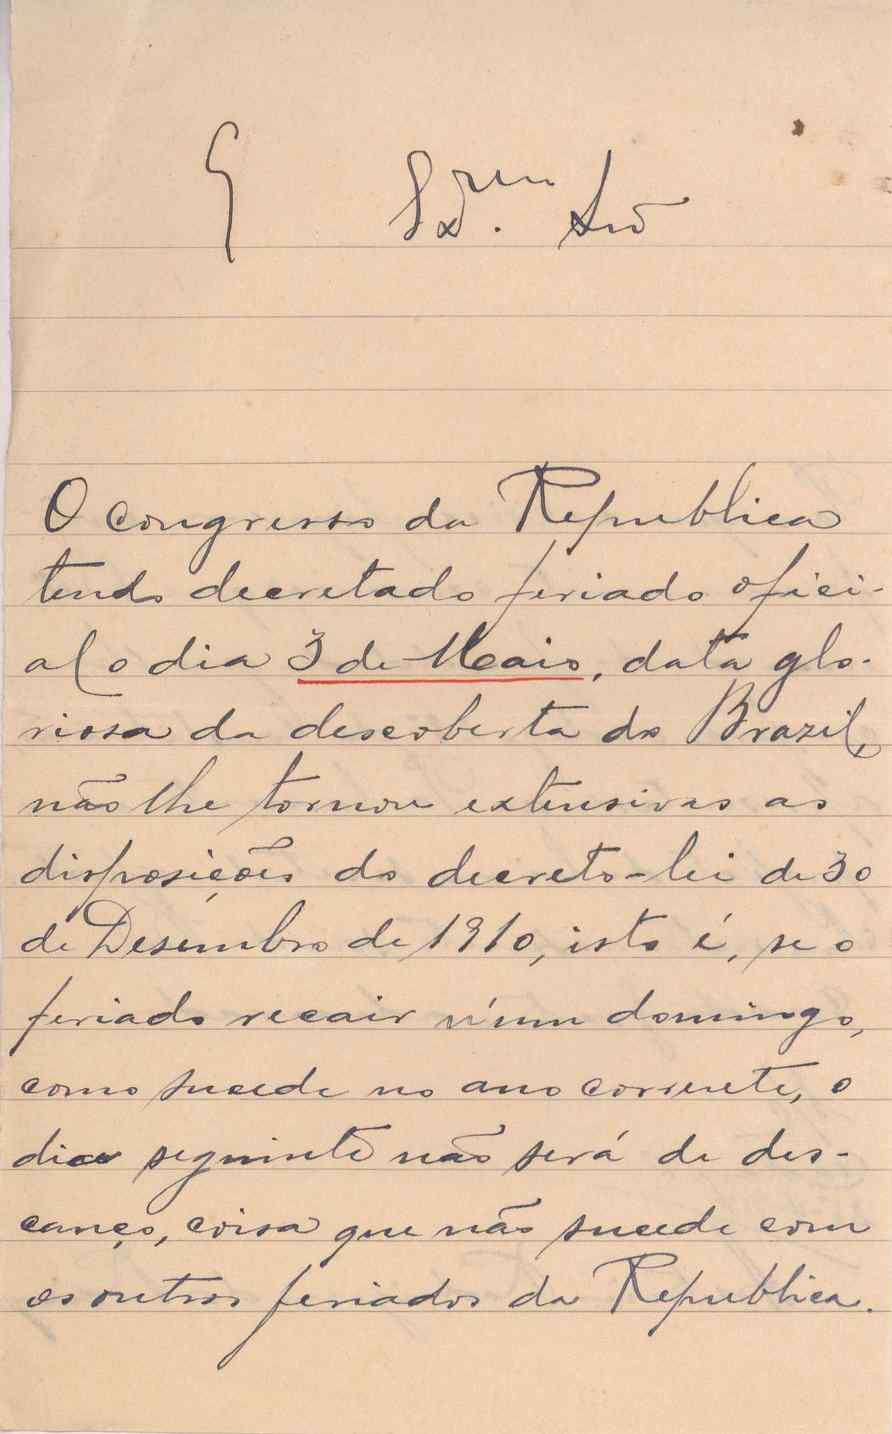 O congresso da Republica
tendo decretado feriado ofici-
al o dia 3 de Maio, data glo-
riosa da descoberta do Brazil,
não lhe tornou extensivas as
disposições do decreto-lei de 30
de Desembro de 1910, isto é, se o
feriado recair n'um domingo,
como sucede no ano corrente, o
dia seguinte não será de des-
canço, coisa que não sucede com
os outros feriados da Republica.